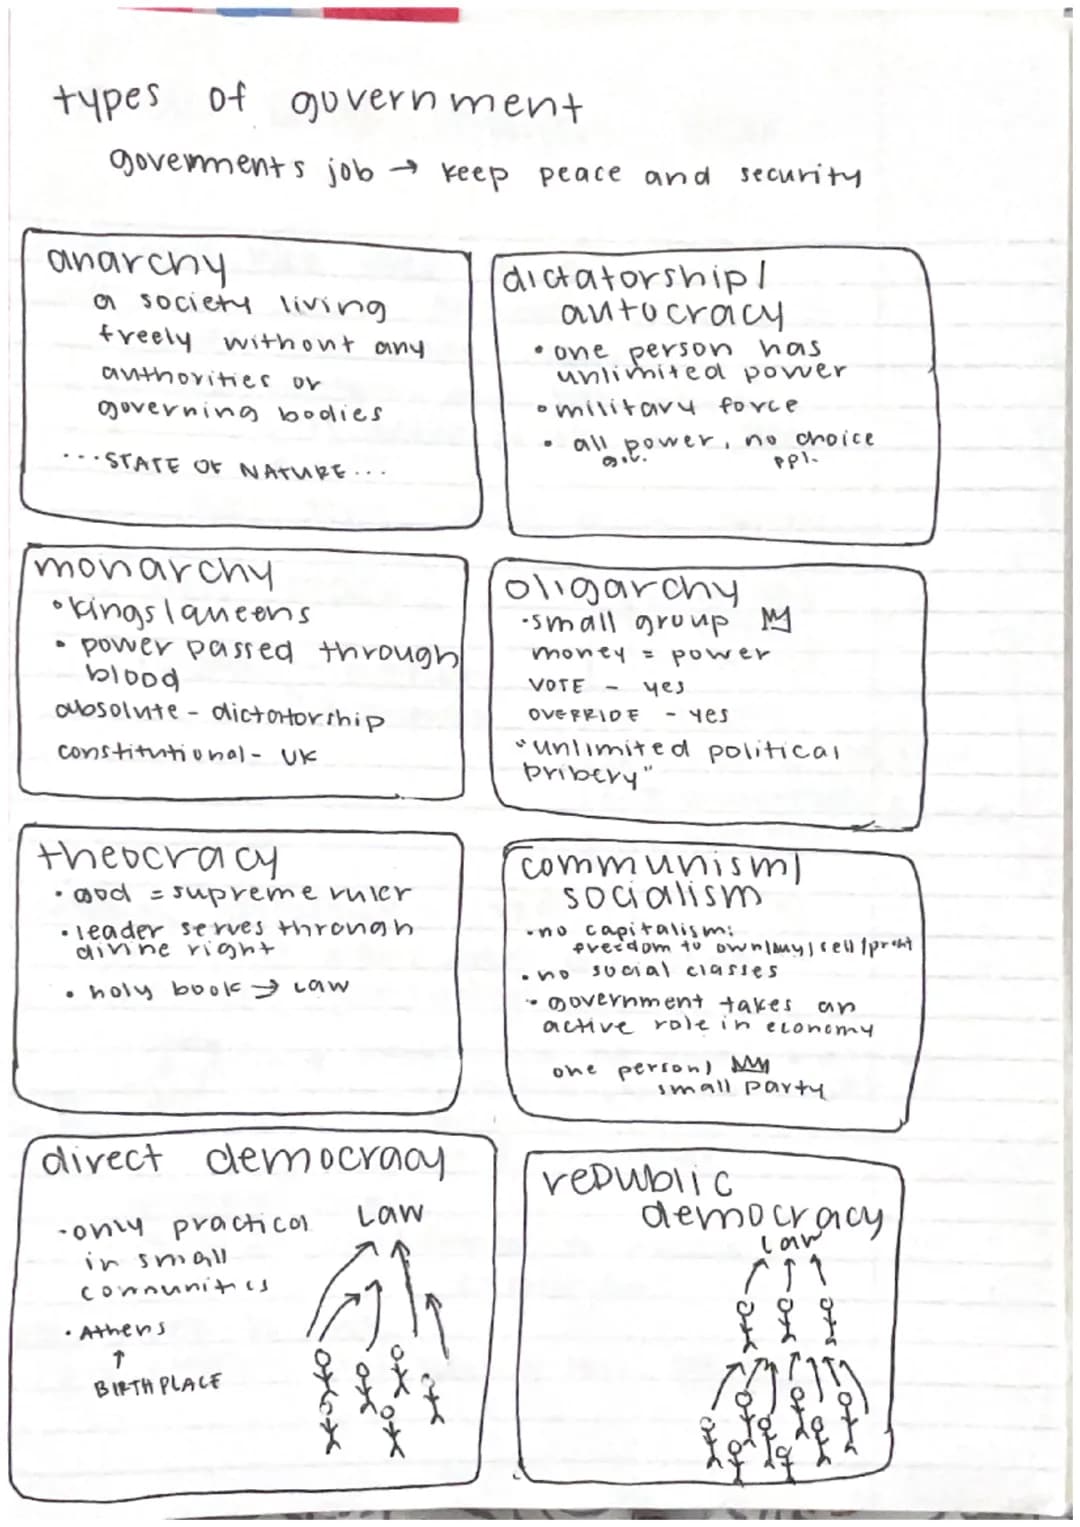 types of government
governments job → keep peace and security
anarchy
a society living
freely without any
authorities or
governing bodies
...STATE OF NATURE...
dictatorship/
autocracy
• one person has
unlimited power
• military force
• all power, no choice
ppl.
monarchy
• kings/queens
• power passed through
blood
absolute - dictatorship
constitutional - UK
oligarchy
• small group
money = power
VOTE - yes
OVERRIDE - yes
"unlimited political
bribery"
theocracy
• god = supreme ruler
• leader serves through
divine right
• holy book → law
communism/
socialism
• no capitalism:
freedom to own/buy/sell/profit
• no social classes
• government takes an
active role in economy
one person/
small party
direct democracy
- only practical
in small
communities
• Athens
↑
BIRTHPLACE
Law
republic
democracy
Law